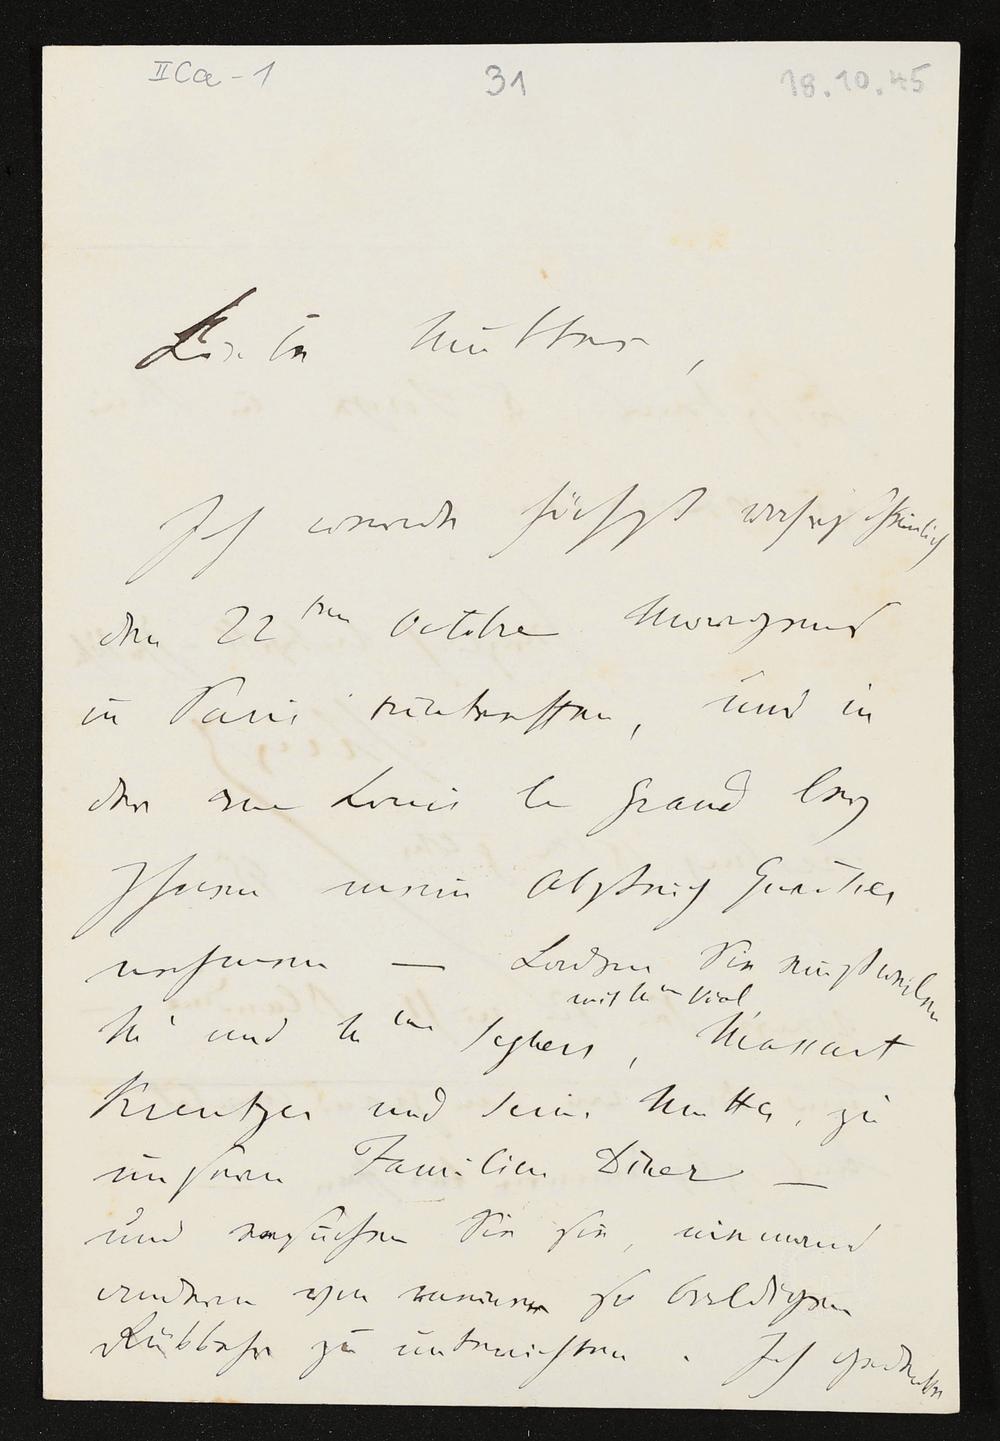 IICa-1 31 18.10.45
Liebste Mutter,
Ich werde höchst wahrscheinlich
den 22ten October Morgends
in Paris eintreffen, und in
der rue Louis le Grand bey
Ihnen mein Absteig Quartier
nehmen — Laden Sie einstweilen
mit Mme Vial
Mr und Mme Seghers, Massart
Kreutzer und seine Mutter, zu
unserm Familien Diner —
und ersuchen Sie sie, niemand
andern von meiner so baldigen
Rükkehr zu unterrichten. Ich gedenke